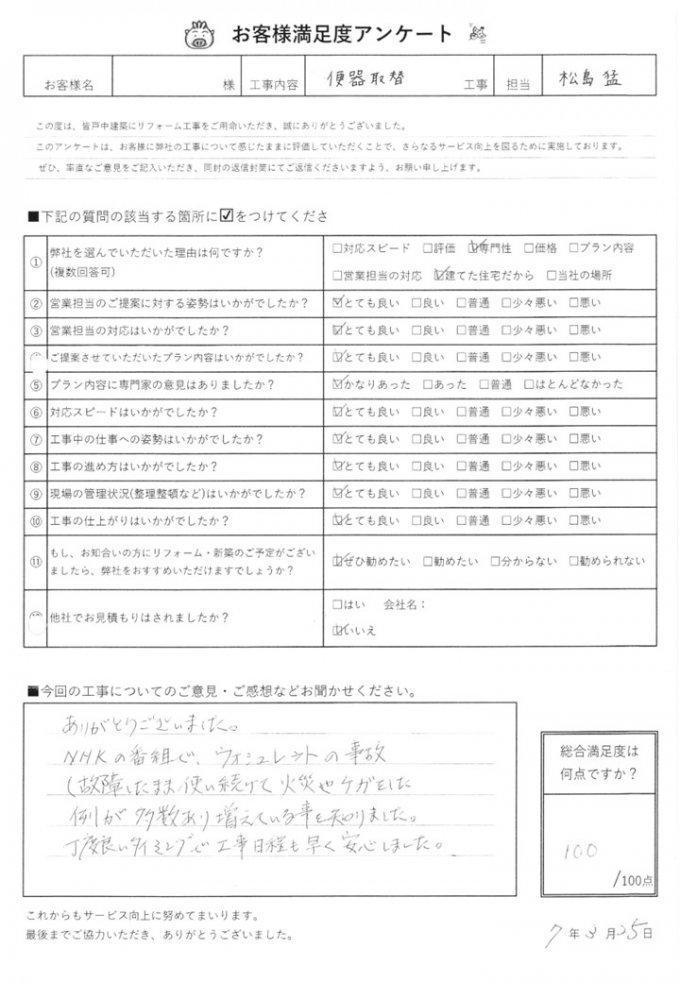 お客様満足度アンケート
お客様名 様 工事内容 便器取替 工事 担当 松島 猛
この度は、皆戸中建築にリフォーム工事をご用命いただき、誠にありがとうございました。
このアンケートは、お客様に弊社の工事について感じたままに評価していただくことで、さらなるサービス向上を図るために実施しております。
ぜひ、率直なご意見をご記入いただき、同封の返信封筒にてご返信くださいますよう、お願い申し上げます。
■下記の質問の該当する箇所に☑をつけてくださ
① 弊社を選んでいただいた理由は何ですか？ □対応スピード □評価 ☑専門性 □価格 □プラン内容
(複数回答可) □営業担当の対応 ☑建てた住宅だから □当社の場所
② 営業担当のご提案に対する姿勢はいかがでしたか？ ☑とても良い □良い □普通 □少々悪い □悪い
③ 営業担当の対応はいかがでしたか？ ☑とても良い □良い □普通 □少々悪い □悪い
ご提案させていただいたプラン内容はいかがでしたか？ ☑とても良い □良い □普通 □少々悪い □悪い
⑤ プラン内容に専門家の意見はありましたか？ ☑かなりあった □あった □普通 □ほとんどなかった
⑥ 対応スピードはいかがでしたか？ ☑とても良い □良い □普通 □少々悪い □悪い
⑦ 工事中の仕事への姿勢はいかがでしたか？ ☑とても良い □良い □普通 □少々悪い □悪い
⑧ 工事の進め方はいかがでしたか？ ☑とても良い □良い □普通 □少々悪い □悪い
⑨ 現場の管理状況(整理整頓など)はいかがでしたか？ ☑とても良い □良い □普通 □少々悪い □悪い
⑩ 工事の仕上がりはいかがでしたか？ ☑とても良い □良い □普通 □少々悪い □悪い
⑪ もし、お知合いの方にリフォーム・新築のご予定がござい
ましたら、弊社をおすすめいただけますでしょうか？ ☑ぜひ勧めたい □勧めたい □分からない □勧められない
他社でお見積もりはされましたか？ □はい 会社名：
☑いいえ
■今回の工事についてのご意見・ご感想などお聞かせください。
ありがとうございました。
NHKの番組で、ウォシュレットの事故
(故障したまま使い続けて火災やケガをした
例が多数あり増えている事を知りました。
丁度良いタイミングで工事日程も早く安心しました。
総合満足度は
何点ですか？
100
/100点
これからもサービス向上に努めてまいります。
最後までご協力いただき、ありがとうございました。
7年3月25日